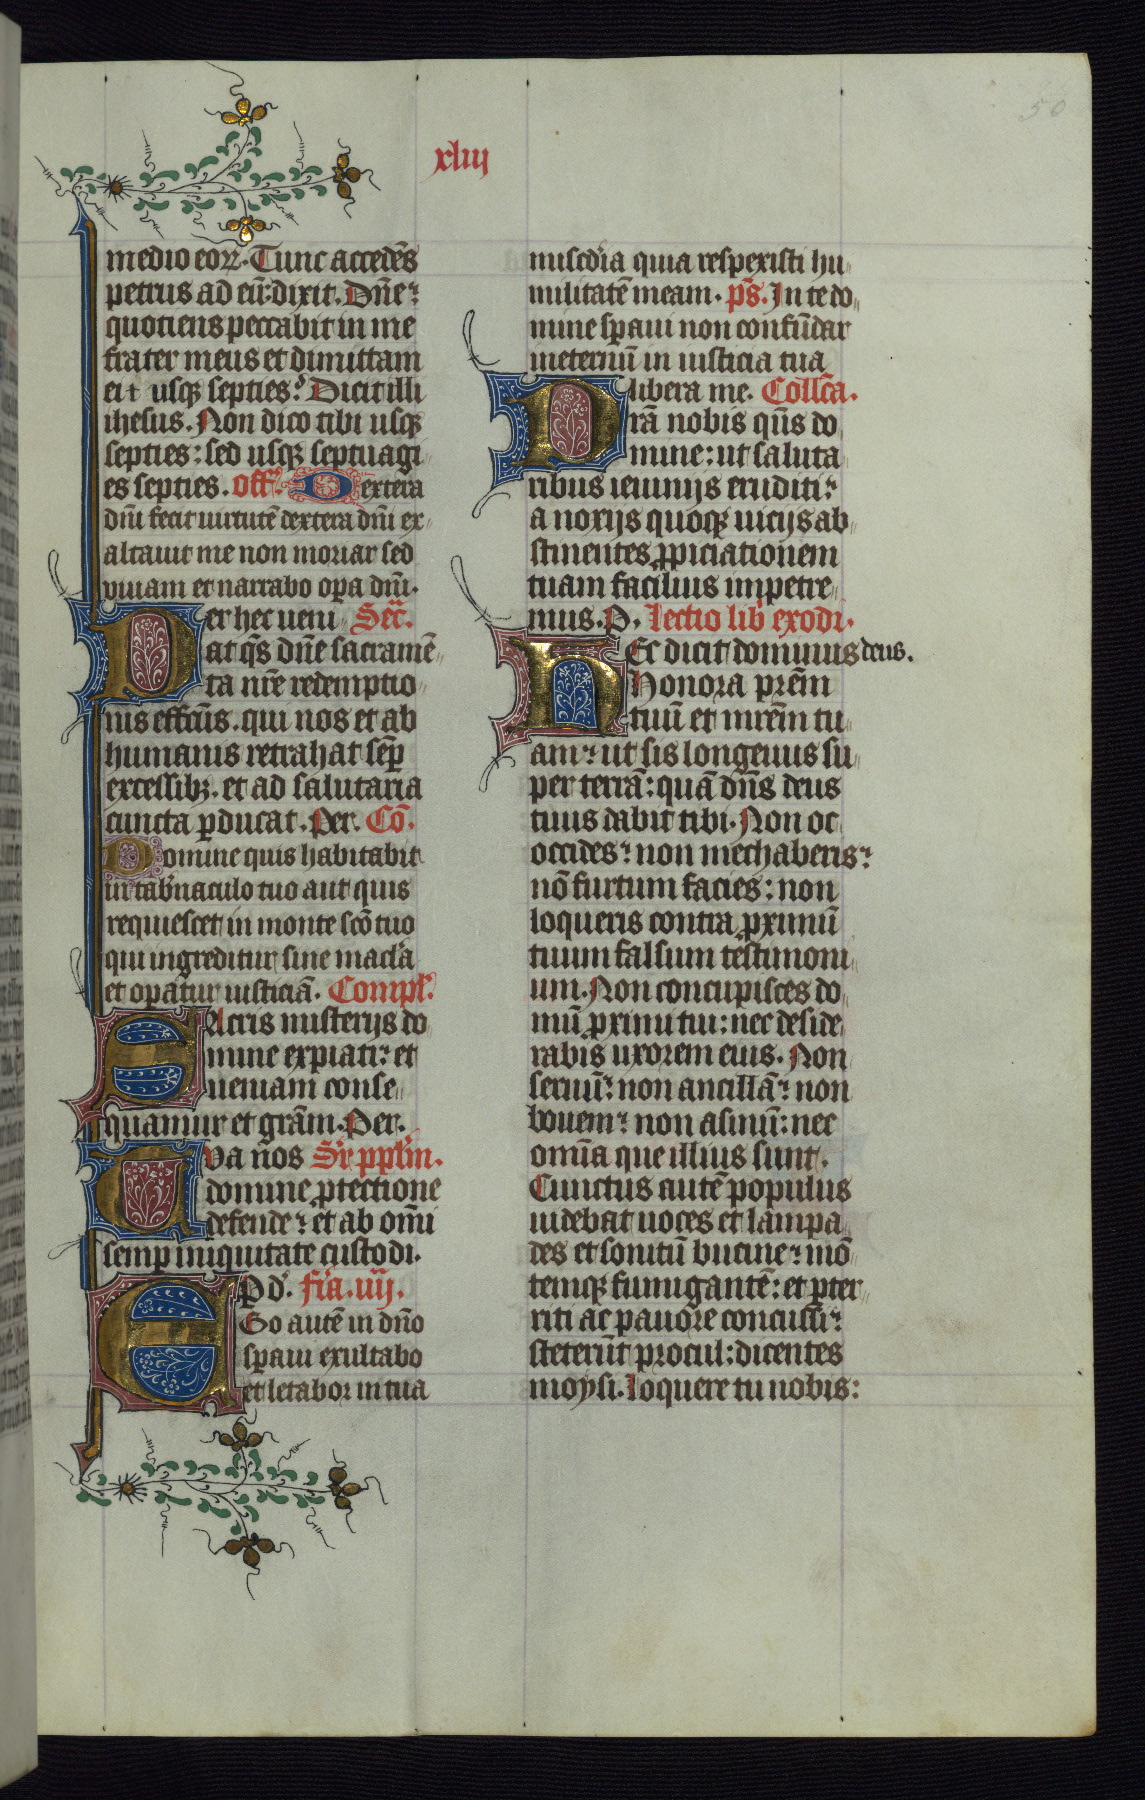 50
xliij
medio eoꝝ. Tunc accedēs
petrus ad eū: dixit. Dn̄e:
quotiens peccabit in me
frater meus et dimittam
ei: usqꝫ septies? Dicit illi
ihesus. Non dico tibi usqꝫ
septies: sed usqꝫ septuagi
es septies. Off. Dextera
dn̄i fecit uirtutē dextera dn̄i ex
altauit me non moriar sed
uiuam et narrabo opa dn̄i.
er hec ueni Secr̄.
Dat qs̄ dn̄e sacramē
ta nr̄e redemptio
nis effctūs. qui nos et ab
humanis retrahat semp̄
excessibꝫ. et ad salutaria
cuncta ꝑducat. Per. Cō.
Domine quis habitabit
in tab̓naculo tuo aut quis
requiescet in monte scō tuo
qui ingreditur sine macl̄a
et opatur iusticiā. Compl̓.
SAcris misterijs do
mine expiati: et
ueniam conse
quamur et grām. Per.
TVa n̄os Sr̄ ppl̄m.
domine ꝓtectione
defende: et ab omī
semp iniquitate custodi.
P d̓. fr̄a. iiij.
EGo autē in dn̄o
sꝑaui exultabo
et letabor in tua
miscd̓ia quia respexisti hu
militatē meam. ps̄. In te do
mine sꝑaui non confūdar
ineternū in iusticia tua
libera me. Collc̄a.
Prā nobis qūs do
mine: ut saluta
ribus ieiunijs eruditi:
a noxijs quoqꝫ uicijs ab
stinentes ꝓpiciationem
tuam facilius impetre
mus. P. Lectio lib̓ exodi.
HEc dicit dominus deus.
Honora prēm
tuū et mrēm tu
am: ut sis longeuus su
per terrā: quā dn̄s deus
tuus dabit tibi. Non oc
occides: non mechaberis:
nō furtum facies: non
loqueris contra ꝓximū
tuum falsum testimoni
um. Non concupisces do
mū ꝓximi tui: nec deside
rabis uxorem eius. Non
seruū: non ancillā: non
bouem: non asinū: nec
omīa que illius sunt.
Cunctus autē populus
uidebat uoces et lampa
des et sonitū bucine: mō
temqꝫ fumigantē: et ꝑter
riti ac pauore concussi:
steterūt procul: dicentes
moysi. Loquere tu nobis: